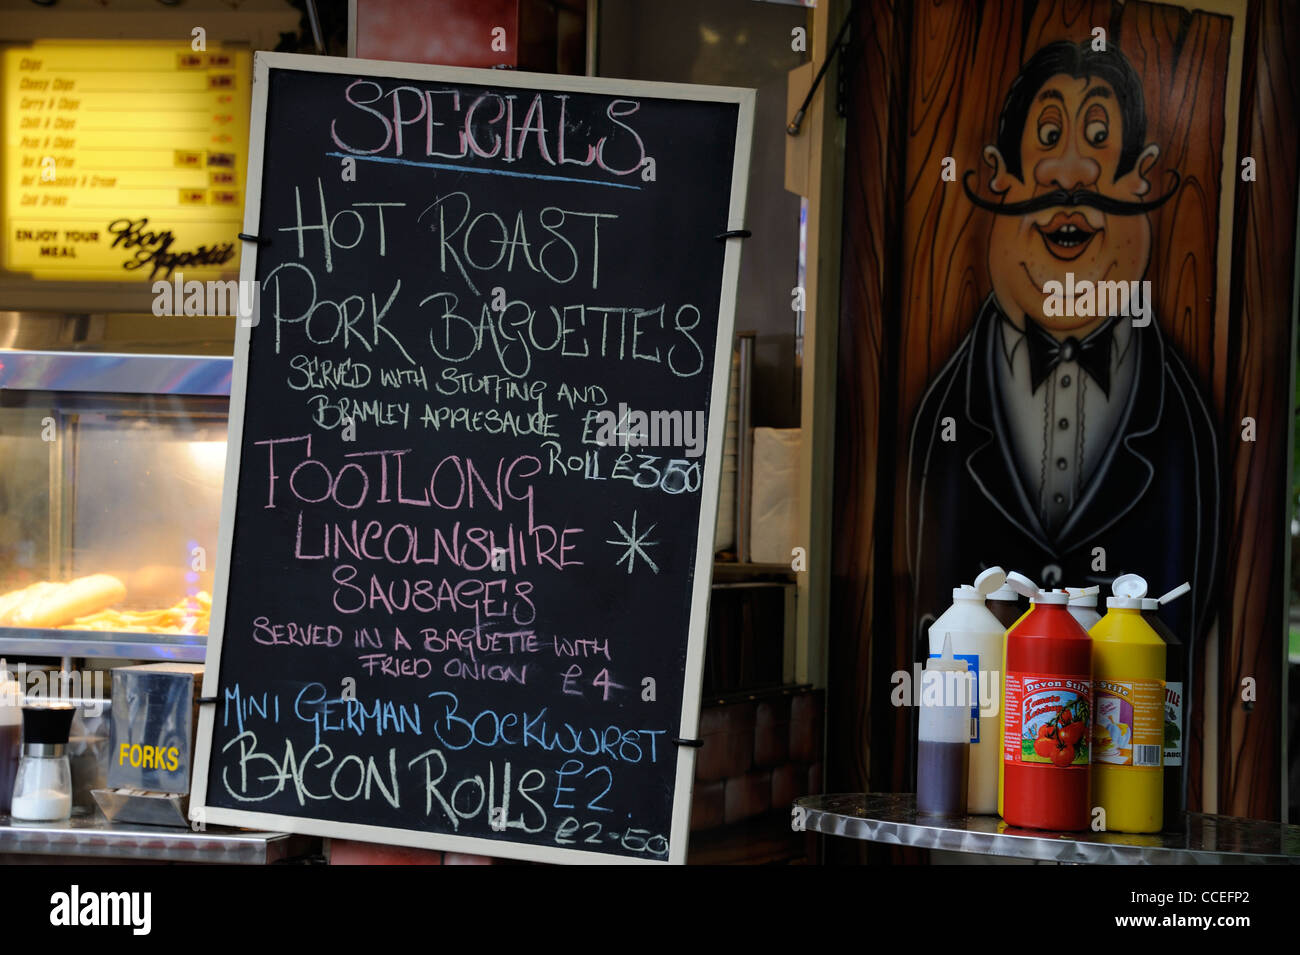 Chips
Cheesy Chips
Curry & Chips
Chilli & Chips
Peas & Chips
Tea & Coffee
Hot Chocolate & Cream
Cold Drinks
ENJOY YOUR
MEAL
Bon
Appétit
SPECIALS
HOT ROAST
PORK BAGUETTE'S
SERVED WITH STUFFING AND
BRAMLEY APPLESAUCE £4
ROLL £3.50
FOOTLONG
LINCOLNSHIRE
SAUSAGES
SERVED IN A BAGUETTE WITH
FRIED ONION £4
MINI GERMAN BOCKWURST
£2
BACON ROLLS
£2-50
FORKS
Devon Stile
Tomato
Ketchup
Stile
TILE
SAUCE
alamy
Image ID: CCEFP2
www.alamy.com